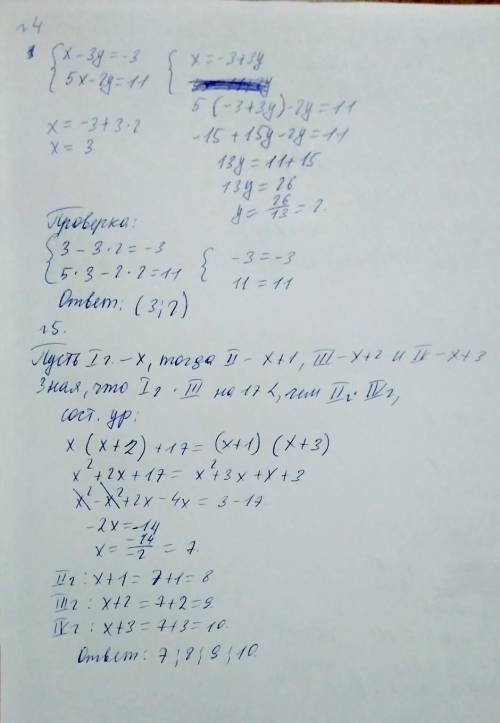 №4
{ x-3y=-3 { x=-3+3y
{ 5x-2y=11
5(-3+3y)-2y=11
x=-3+3·2 -15+15y-2y=11
x=3 13y=11+15
13y=26
y=26/13=2.
Проверка:
{ 3-3·2=-3 { -3=-3
{ 5·3-2·2=11 { 11=11
Ответ: (3;2)
№5.
Пусть I г. - x, тогда II - x+1, III - x+2 и IV - x+3
Зная, что I г · III на 17 <, чем II г · IV г,
сост. ур:
x(x+2)+17=(x+1)(x+3)
x²+2x+17=x²+3x+x+3
x²-x²+2x-4x=3-17
-2x=-14
x=-14/-2=7.
II г: x+1=7+1=8
III г: x+2=7+2=9.
IV г: x+3=7+3=10.
Ответ: 7;8;9;10.